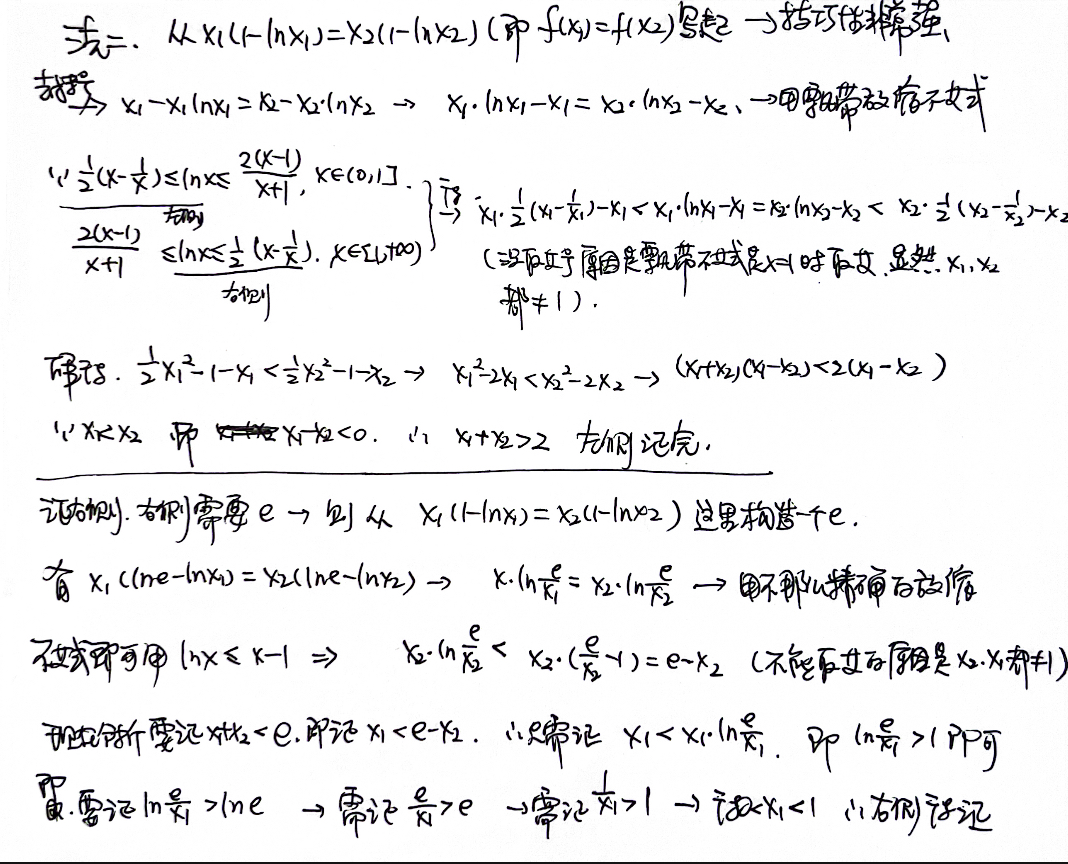 法二. 从 x₁(1-lnx₁)=x₂(1-lnx₂) (即 f(x₁)=f(x₂)) 写起 → 技巧性非常强、
去括号 → x₁-x₁lnx₁=x₂-x₂·lnx₂ → x₁·lnx₁-x₁=x₂·lnx₂-x₂、→用飘带放缩不等式
∵ 1/2(x-1/x)≤lnx≤2(x-1)/(x+1), x∈(0,1]. 左侧
2(x-1)/(x+1)≤lnx≤1/2(x-1/x). x∈[1,+∞) 右侧
可得 → x₁·1/2(x₁-1/x₁)-x₁<x₁·lnx₁-x₁=x₂·lnx₂-x₂<x₂·1/2(x₂-1/x₂)-x₂
(没取等号原因是飘带不等式是x=1时取等. 显然 x₁、x₂
都≠1).
解得. 1/2x₁²-1-x₁<1/2x₂²-1-x₂ → x₁²-2x₁<x₂²-2x₂ → (x₁+x₂)(x₁-x₂)<2(x₁-x₂)
∵ x₁<x₂ 即 x₁-x₂<0. ∴ x₁+x₂>2 左侧证完.
证右侧. 右侧需要 e → 则从 x₁(1-lnx₁)=x₂(1-lnx₂) 这里构造一个e.
有 x₁(lne-lnx₁)=x₂(lne-lnx₂) → x₁·ln e/x₁=x₂·ln e/x₂ → 用不那么精确的放缩
不等式即可用 lnx≤x-1 ⇒ x₂·ln e/x₂<x₂·(e/x₂-1)=e-x₂ (不能取等的原因是x₂、x₁都≠1)
现在分析 要证x₁+x₂<e. 即证 x₁<e-x₂. ∴只需证 x₁<x₁·ln e/x₁. 即 ln e/x₁>1 即可
即. 需证 ln e/x₁>lne → 需证 e/x₁>e → 需证 1/x₁>1 → x₁<1 ∴右侧得证